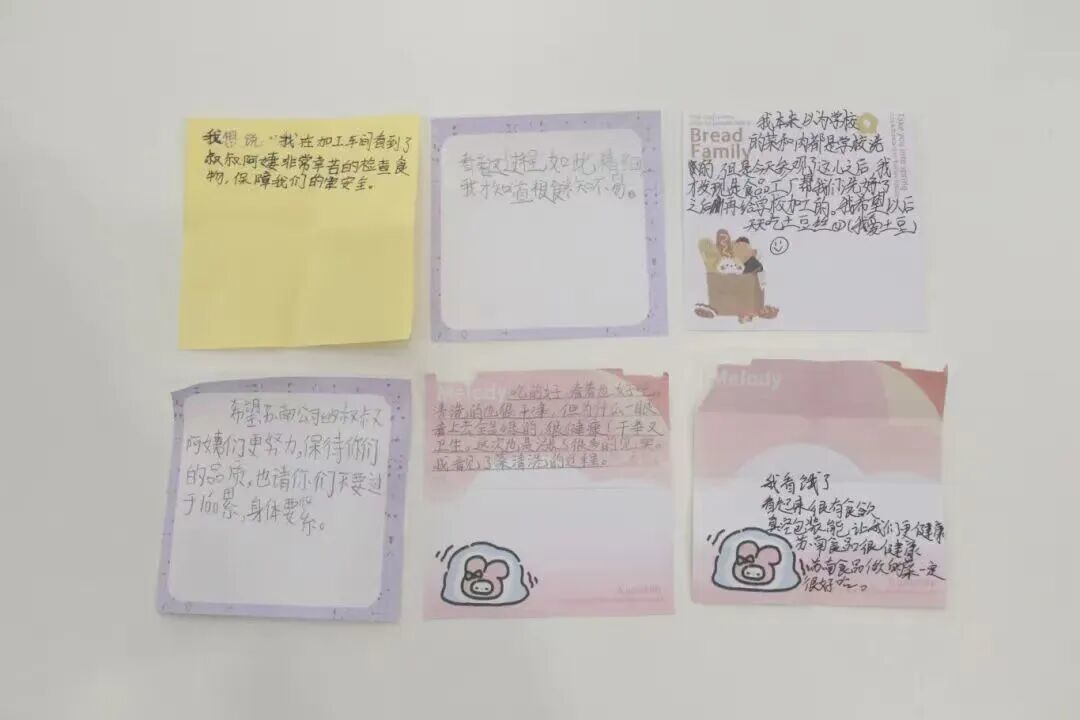 我想说："我在加工车间看到了
叔叔阿姨非常辛苦的检查食
物，保障我们的安全。
看着过程如此
我才知道粮食不易。
Bread
Family
我本来以为学校
的菜和肉都是学校洗
但是今天参观了这儿之后，我
才发现是食品工厂帮我们洗好了
之后再给学校加工的。我希望以后
天天吃土豆丝（我爱土豆）
希望苏南公司的叔叔
阿姨们更努力，保持你们
的品质，也请你们不要过
于劳累，身体要紧。
Melody
吃的好 看着也好吃。
清洗的也很干净，但为什么一眼
看上去全是绿的，很健康！干净又
卫生，这次也是涨了很多的见识。
我看见了菜清洗的过程。
Melody
我看饿了
看起来很有食欲
真空包装能让我们更健康
苏南食品很健康
苏南食品做的菜一定
很好吃。